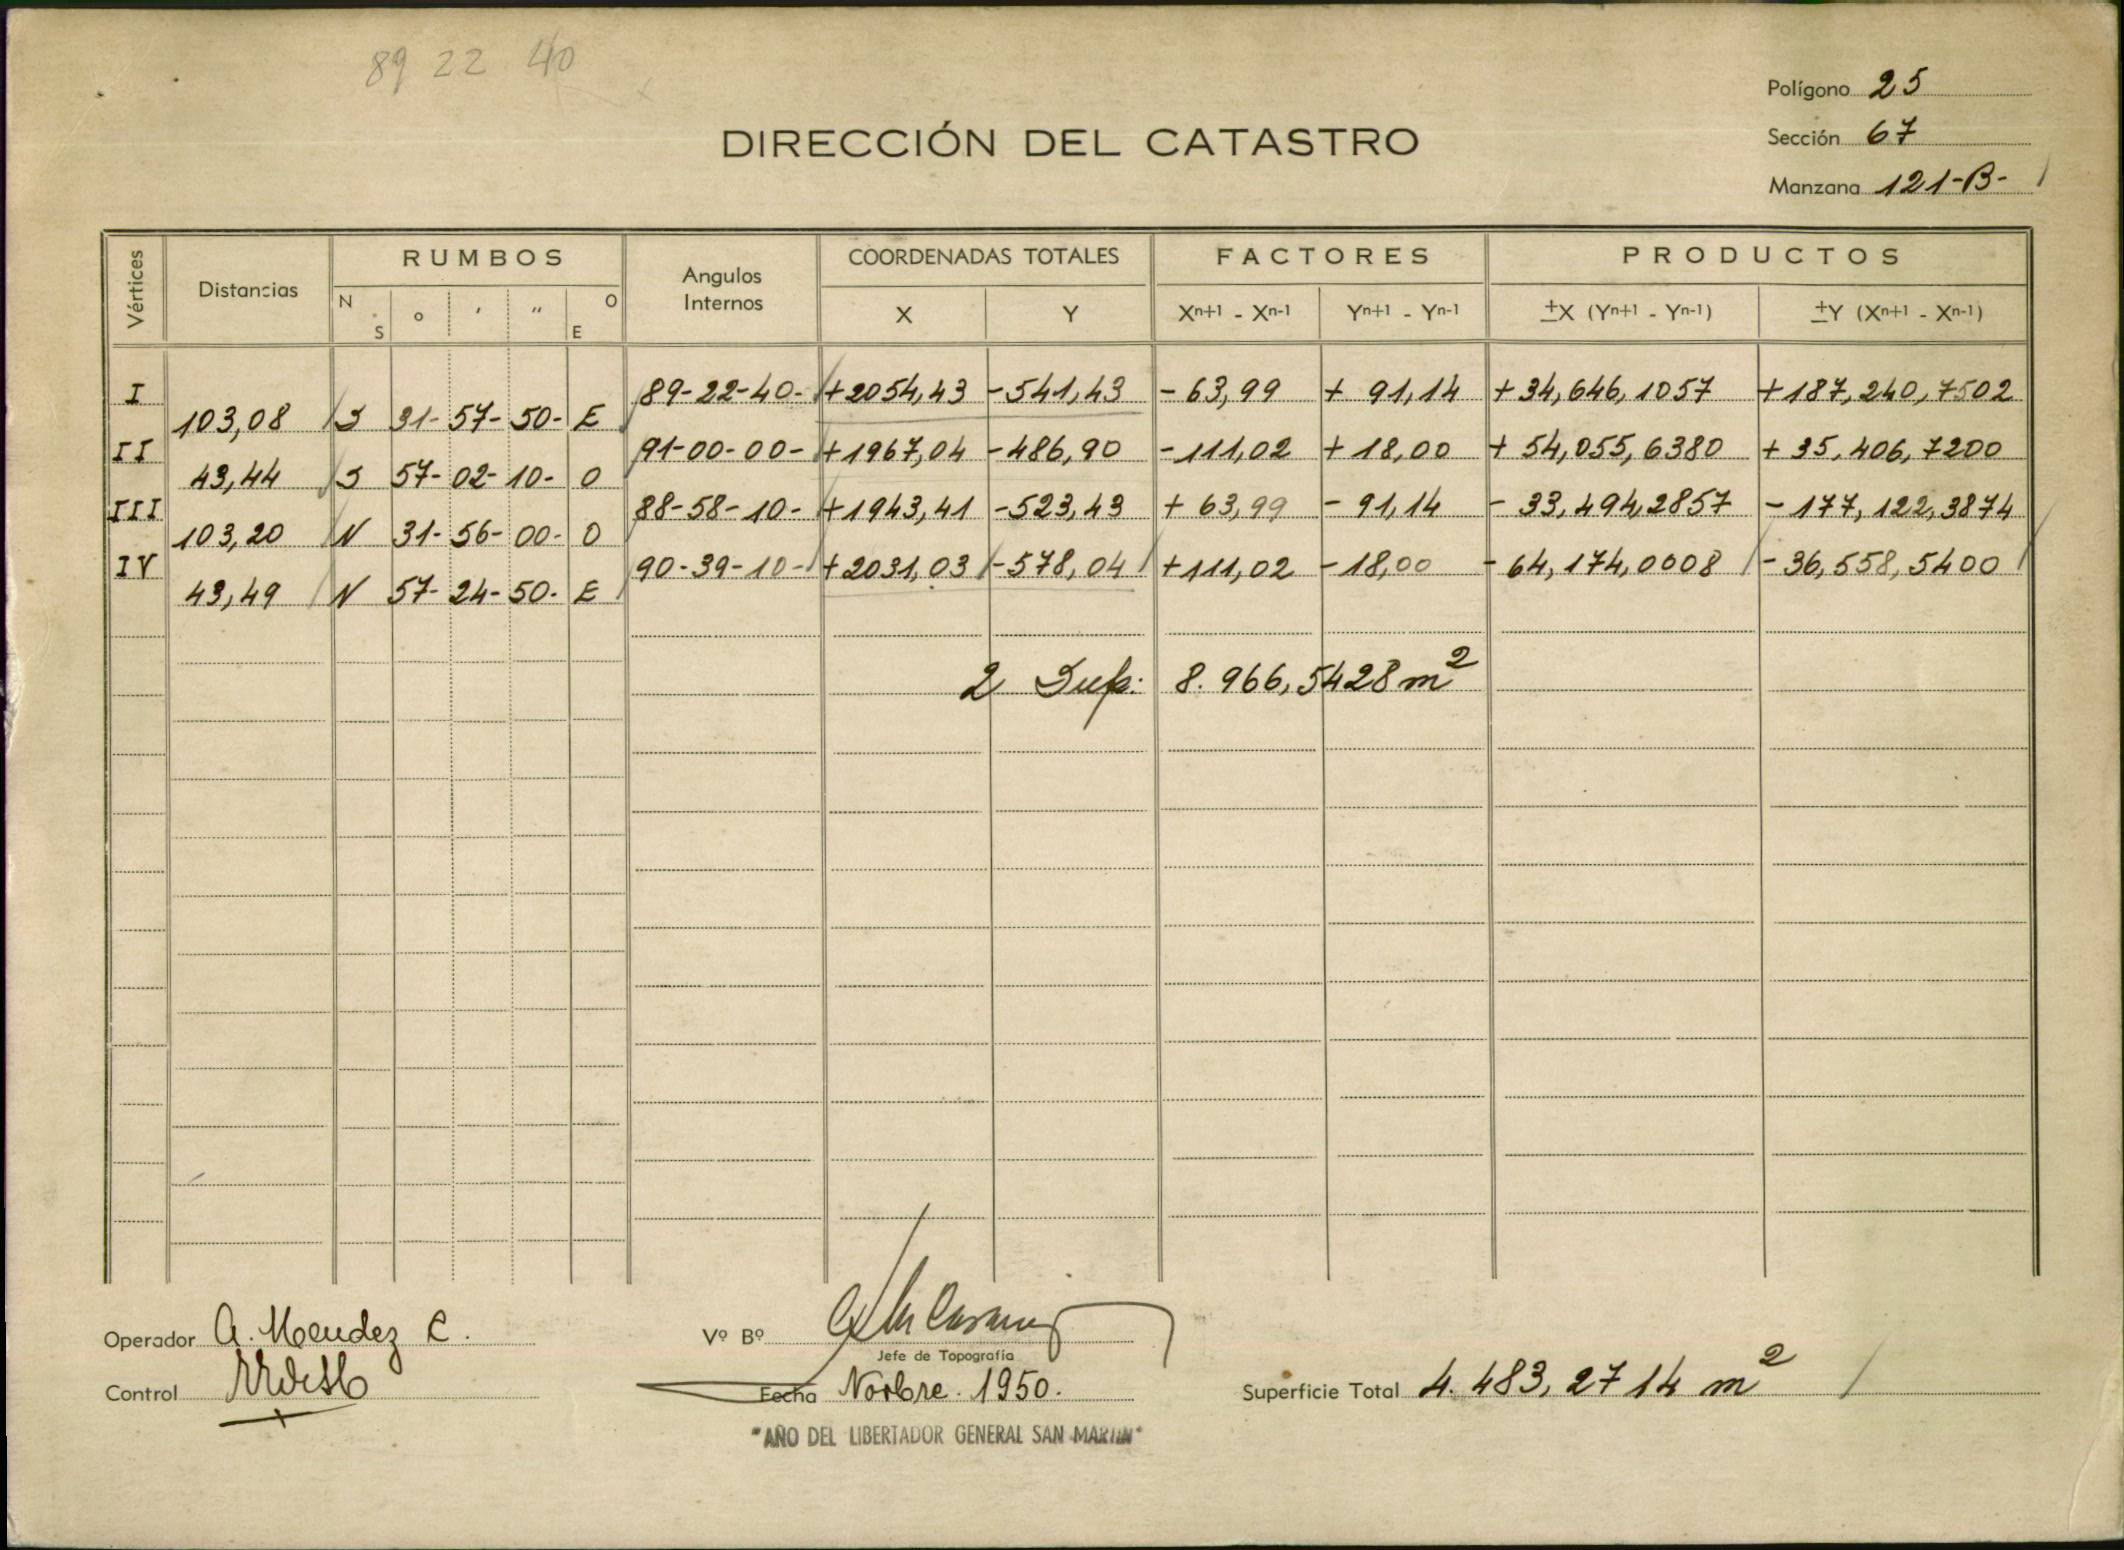 89 22 40
Polígono 25
Sección 67
Manzana 121-B-
DIRECCIÓN DEL CATASTRO
Vértices Distancias RUMBOS Angulos Internos COORDENADAS TOTALES FACTORES PRODUCTOS
N S o ' " O E X Y Xn+1 - Xn-1 Yn+1 - Yn-1 ±X (Yn+1 - Yn-1) ±Y (Xn+1 - Xn-1)
I 89-22-40- +2054,43 -541,43 -63,99 + 91,14 +34,646,1057 +187,240,7502
103,08 S 31-57-50- E
II 91-00-00- +1967,04 -486,90 -111,02 +18,00 + 54,055,6380 + 35,406,7200
43,44 S 57-02-10- O
III 88-58-10- +1943,41 -523,43 + 63,99 - 91,14 - 33,494,2857 - 177,122,3874
103,20 N 31-56-00- O
IV 90-39-10- +2031,03 -578,04 +111,02 -18,00 - 64,174,0008 - 36,558,5400
43,49 N 57-24-50- E
2 Sup: 8.966,5428 m²
Operador A. Mendez C.
Vº Bº
Jefe de Topografía
Control
Fecha Novbre. 1950.
Superficie Total 4.483,2714 m²
"AÑO DEL LIBERTADOR GENERAL SAN MARTIN"